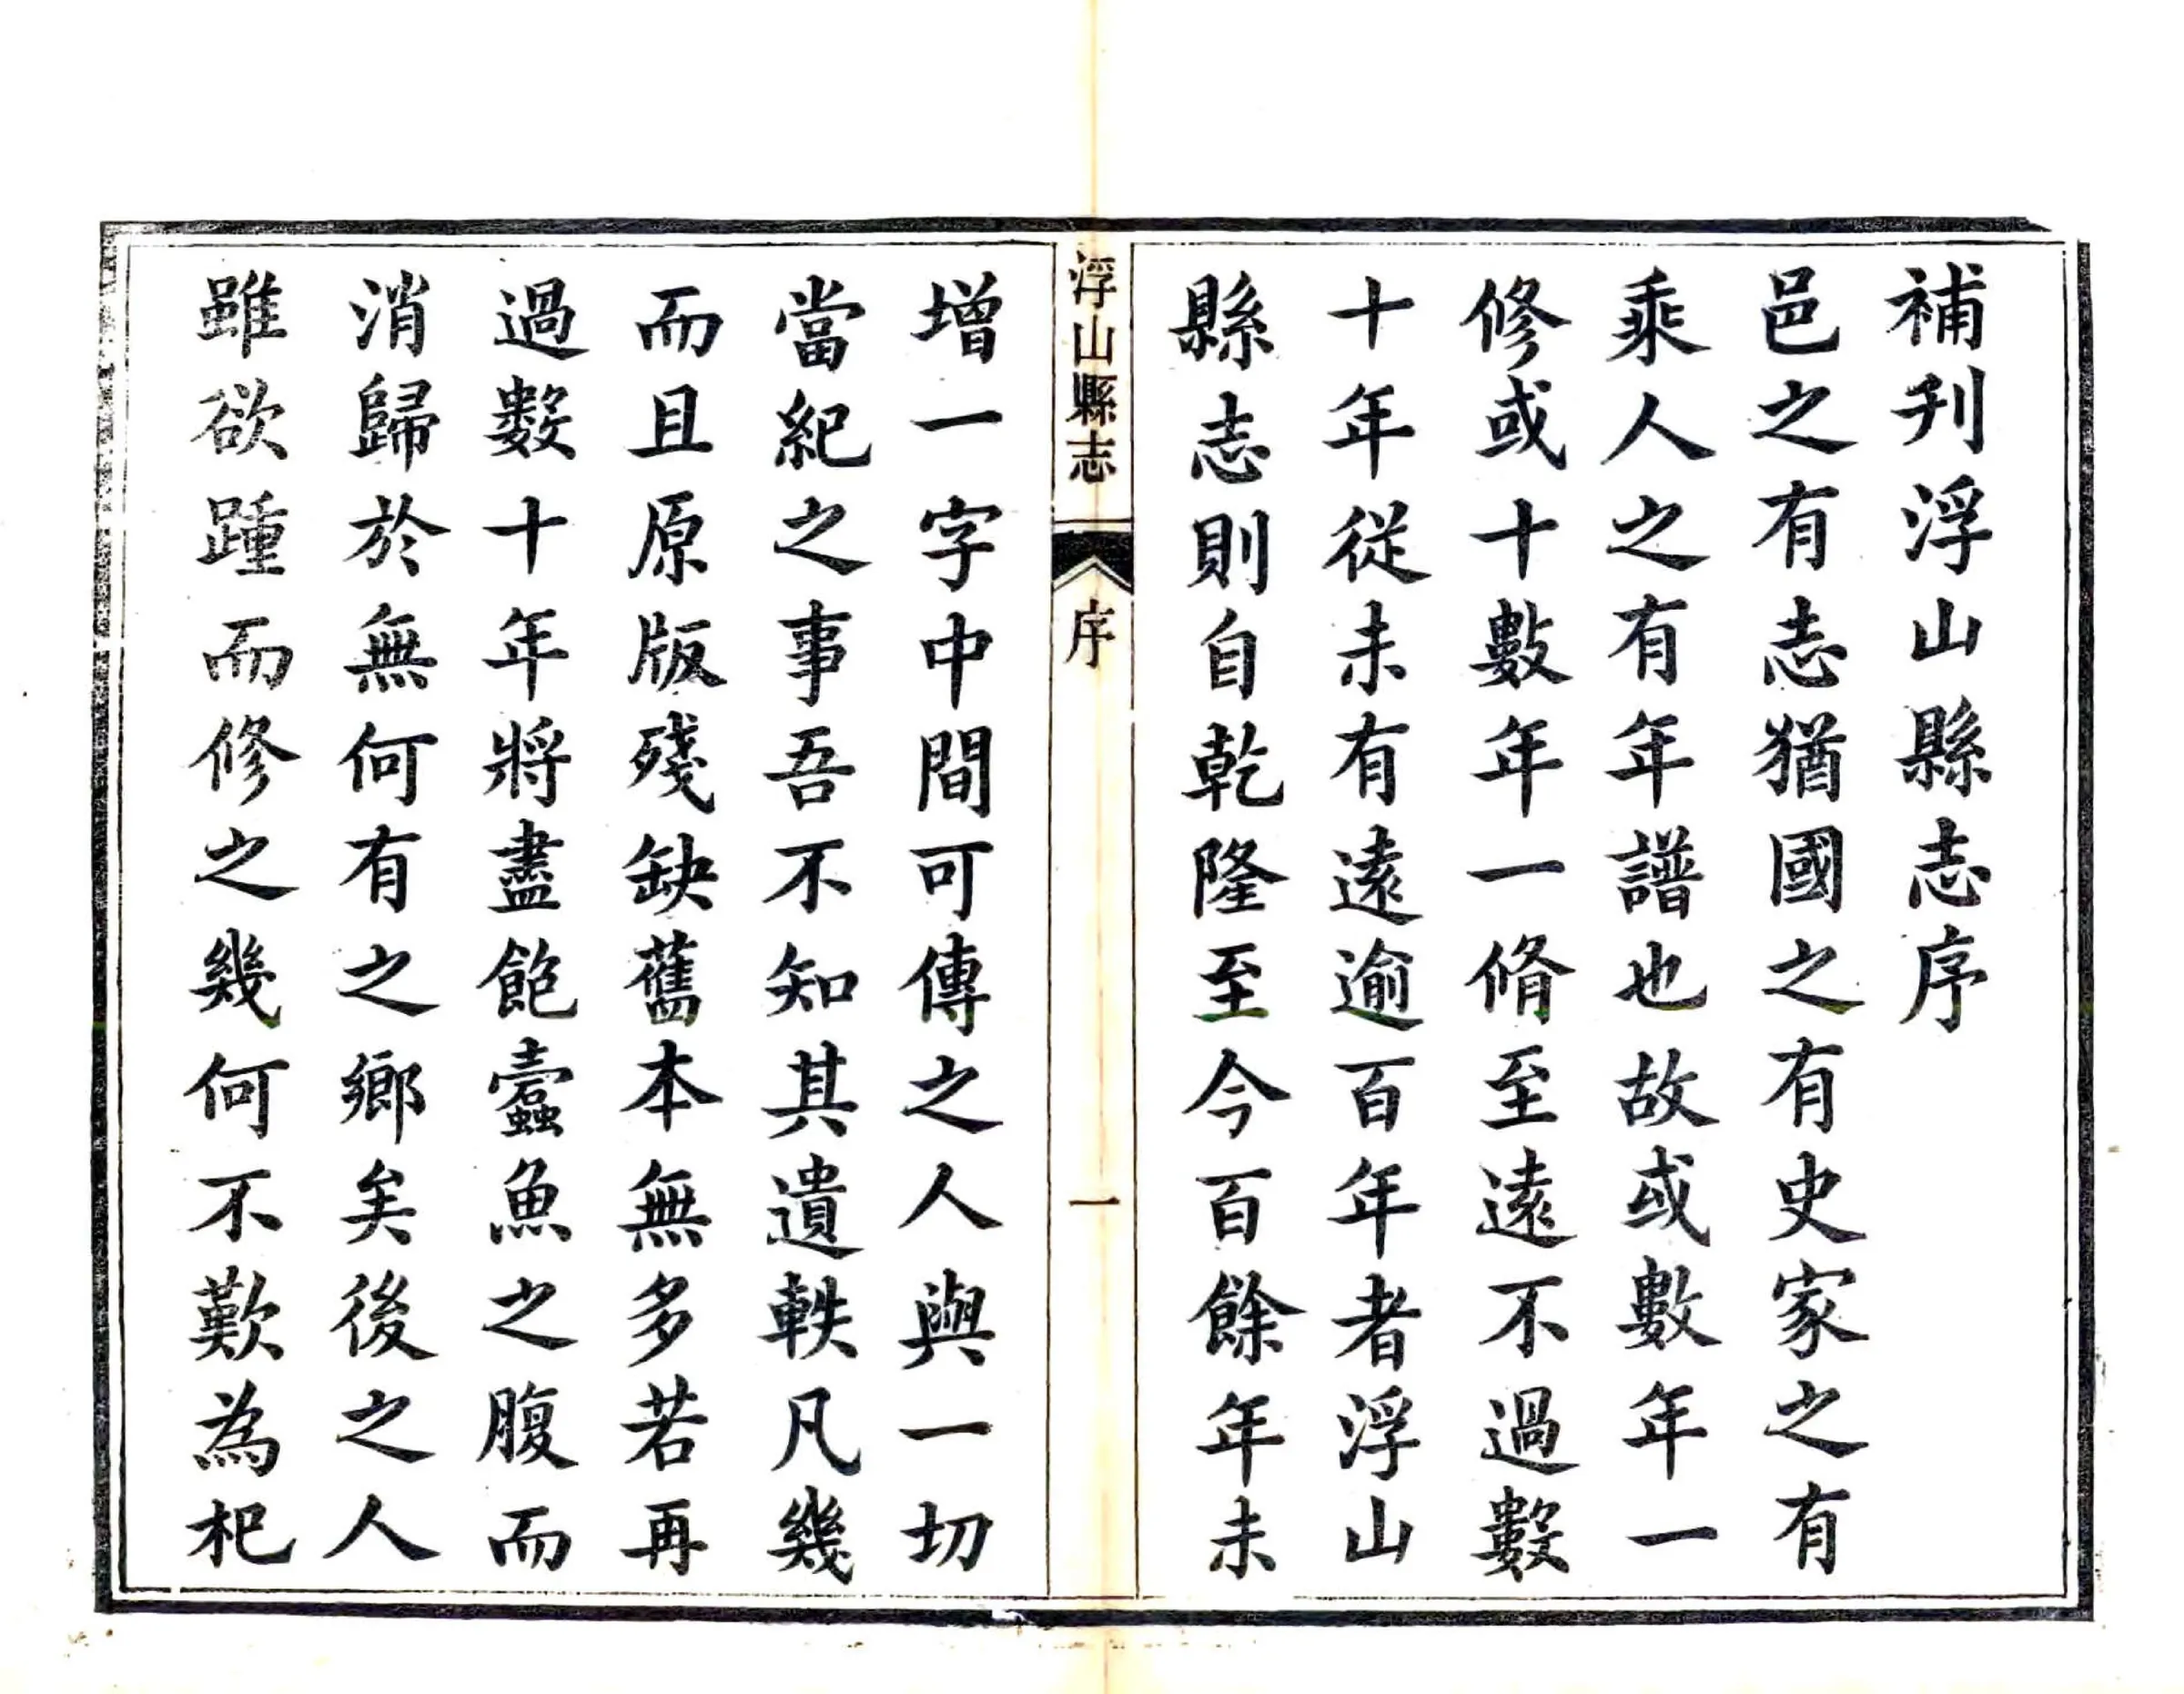 補刋浮山縣志序
邑之有志猶國之有史家之有
乘人之有年譜也故或數年一
修或十數年一脩至遠不過數
十年從未有遠逾百年者浮山
縣志則自乾隆至今百餘年未
浮山縣志 序 一
增一字中間可傳之人與一切
當紀之事吾不知其遺軼凡幾
而且原版殘缺舊本無多若再
過數十年將盡飽蠹魚之腹而
消歸於無何有之鄉矣後之人
雖欲踵而修之幾何不歎為杞